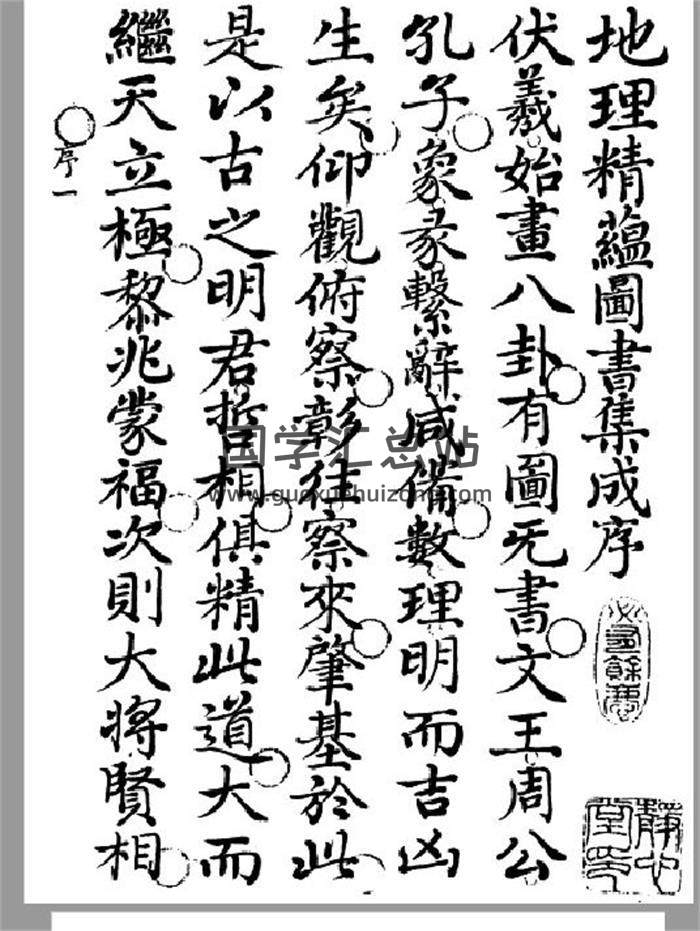 地理精蘊圖書集成序
伏羲始畫八卦有圖旡書文王周公
孔子象彖繫辭咸備數理明而吉凶
生矣仰觀俯察彰往察來肇基於此
是以古之明君哲相俱精此道大而
繼天立極黎兆蒙福次則大將賢相
序一
国学汇总站
www.guoxuehuizong.com